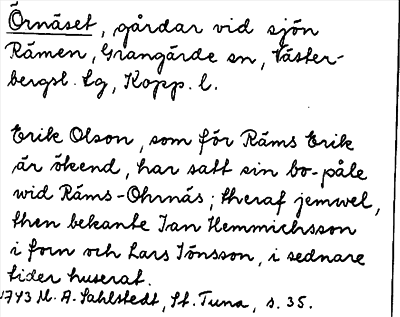 Örnäset, gårdar vid sjön
Rämen, Grangärde sn, Väster-
bergsl. tg, Kopp. l.
Erik Olson, som för Räms Erik
är ökend, har satt sin bo-påle
wid Räms-Ohrnäs; theraf jemwel,
then bekante Jan Hemmichsson
i forn och Lars Jönsson, i sednare
tider huserat.
1743 M. A. Sahlstedt, St. Tuna, s. 35.